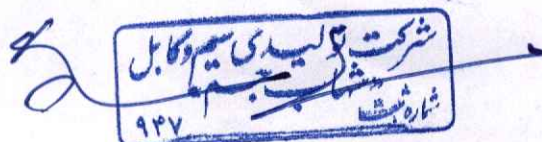 شرکت تولیدی سیم و کابل
شماره ثبت
۹۴۷